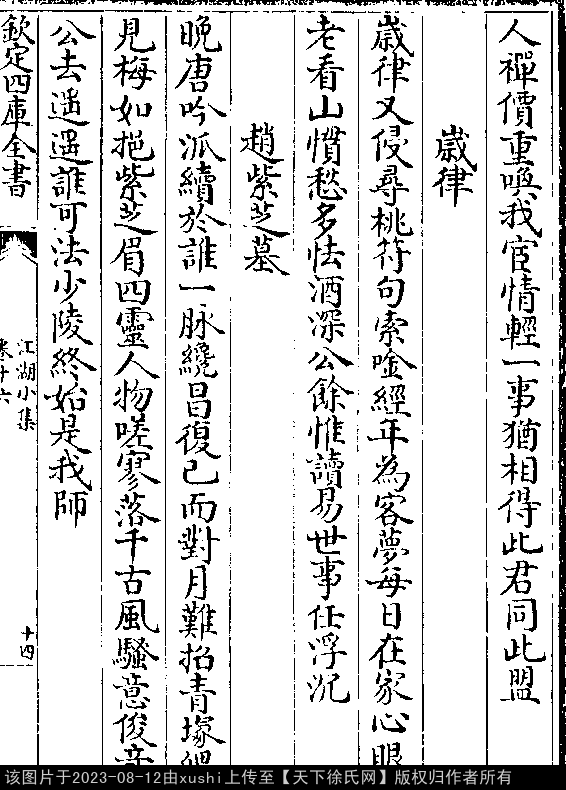 人禪價重喚我宦情輕一事猶相得此君同此盟
歲律
歲律又侵尋桃符句索唫經年為客夢每日在家心眼
老看山慣愁多怯酒深公餘惟讀易世事任浮沉
趙紫芝墓
晚唐吟派續於誰一脉纔昌復已而對月難招青塚
見梅如挹紫芝眉四靈人物嗟寥落千古風騷意俊
公去遥遥誰可法少陵終始是我師
欽定四庫全書
江湖小集
卷十六
十四
该图片于2023-08-12由xushi上传至【天下徐氏网】版权归作者所有